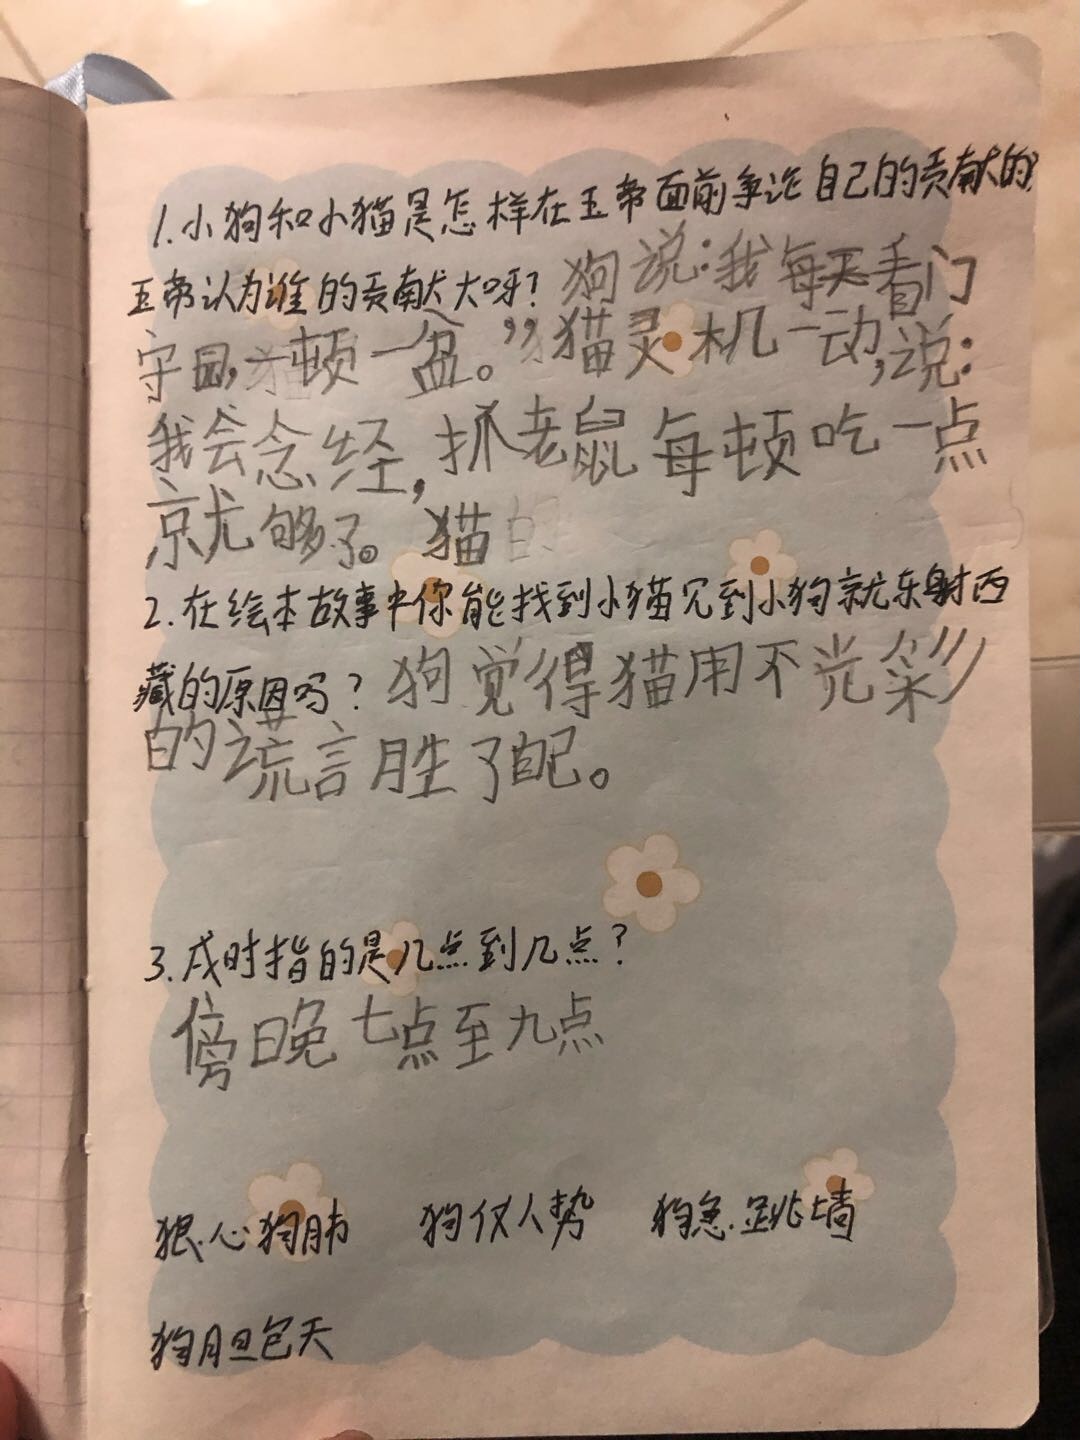 1.小狗和小猫是怎样在玉帝面前争论自己的贡献的?
玉帝认为谁的贡献大呀?狗说:我每天看门
守园,一顿一盆。”猫灵机一动,说:
我会念经,抓老鼠每顿吃一点
就够了。猫的
2.在绘本故事中你能找到小猫见到小狗就东躲西
藏的原因吗?狗觉得猫用不光彩
的谎言胜了自己。
3.戌时指的是几点到几点?
傍晚七点至九点
狠心狗肺 狗仗人势 狗急跳墙
狗胆包天